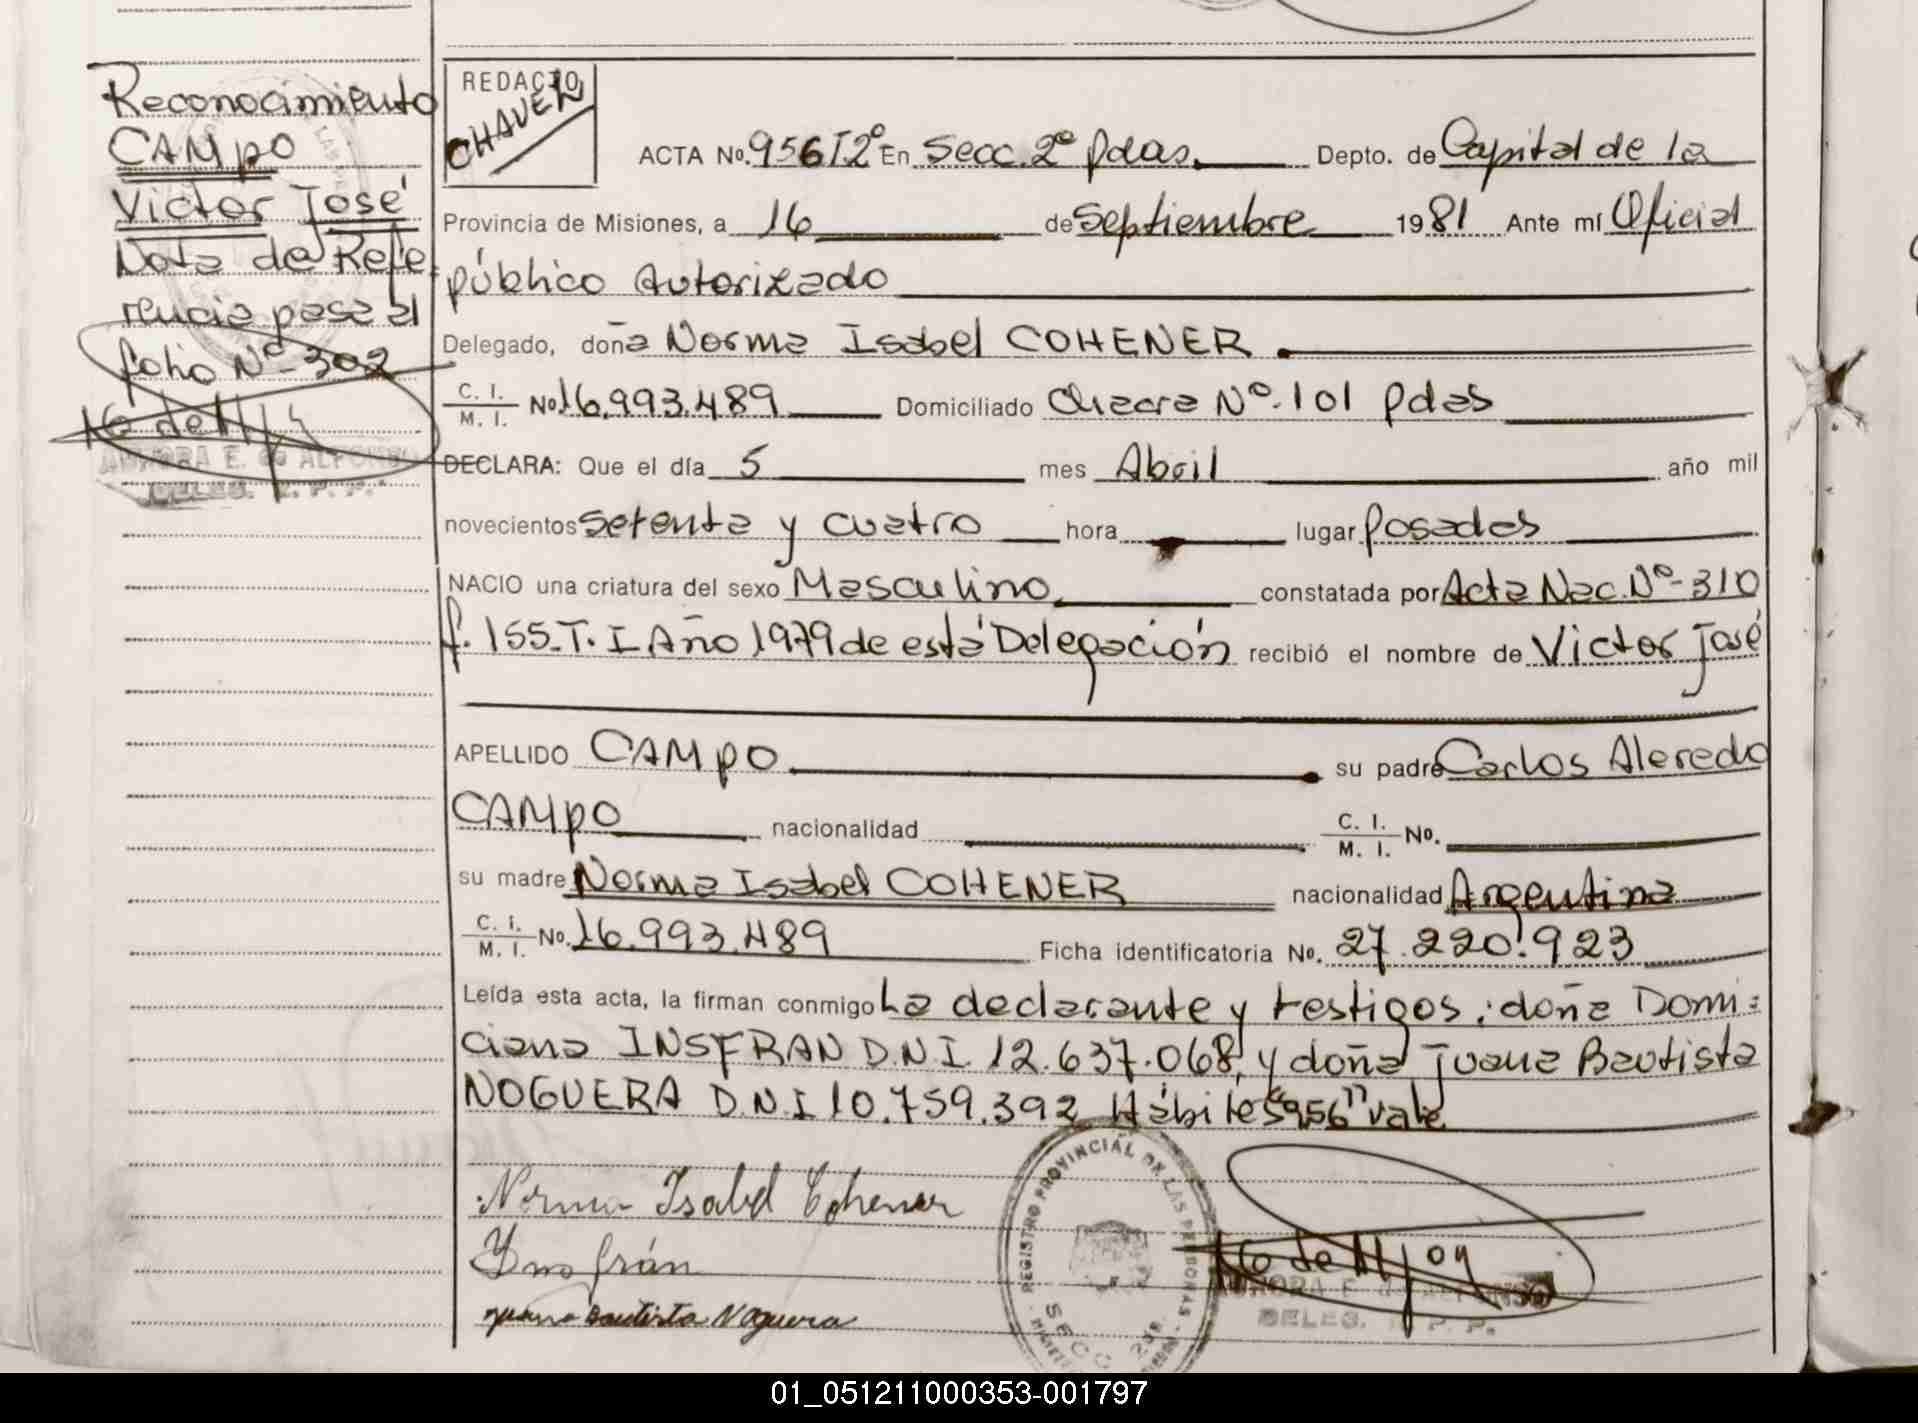 Reconocimiento
CAMPO
Victor José
Nota de Refe
rencia pasa al
folio Nº- 302
AURORA E. de ALFONSO
DELEG. R. P. P.
REDACTO
CHAVEZ
ACTA No. 956 T2º En Secc. 2º Pdas. Depto. de Capital de la
Provincia de Misiones, a 16 de Septiembre 1981 Ante mí Oficial
público Autorizado
Delegado, doña Norma Isabel COHENER
C. I. M. I. No. 16.993.489 Domiciliado Chacra Nº. 101 Pdas
DECLARA: Que el día 5 mes Abril año mil
novecientos setenta y cuatro hora lugar Posadas
NACIO una criatura del sexo Masculino constatada por Acta Nac. Nº- 310
f. 155. T. I Año 1979 de está Delegación recibió el nombre de Victor José
APELLIDO CAMPO su padre Carlos Aleredo
CAMPO nacionalidad C. I. M. I. No.
su madre Norma Isabel COHENER nacionalidad Argentina
C. I. M. I. No. 16.993.489 Ficha identificatoria No. 27.220.923
Leída esta acta, la firman conmigo La declarante y testigos: doña Domi=
ciana INSFRAN D.N.I 12.637.068, y doña Juana Bautista
NOGUERA D.N.I 10.759.392 Hábiles "956" vale
Norma Isabel Cohener
Ynsfrán
Juana Bautista Noguera
REGISTRO PROVINCIAL DE LAS PERSONAS
SECC. 2da.
DELEG. R. P. P.
01_051211000353-001797